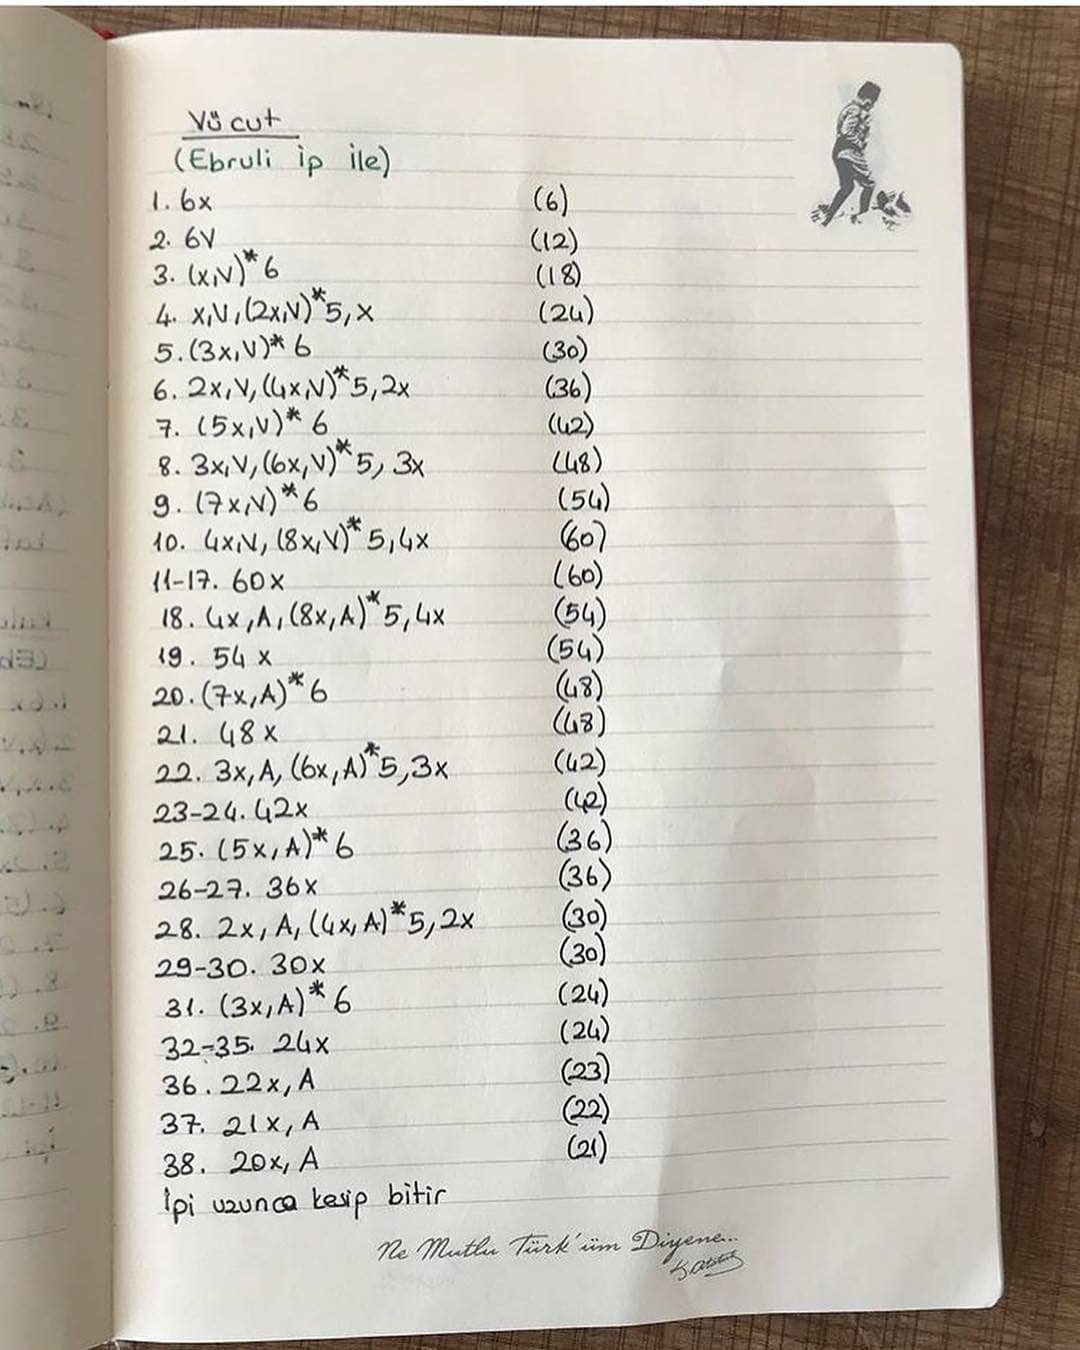 Vücut
(Ebruli ip ile)
1. 6x (6)
2. 6V (12)
3. (x,V)*6 (18)
4. x,V,(2x,V)*5,x (24)
5. (3x,V)*6 (30)
6. 2x,V,(4x,V)*5,2x (36)
7. (5x,V)*6 (42)
8. 3x,V,(6x,V)*5,3x (48)
9. (7x,V)*6 (54)
10. 4x,V,(8x,V)*5,4x (60)
11-17. 60x (60)
18. 4x,A,(8x,A)*5,4x (54)
19. 54x (54)
20. (7x,A)*6 (48)
21. 48x (48)
22. 3x,A,(6x,A)*5,3x (42)
23-24. 42x (42)
25. (5x,A)*6 (36)
26-27. 36x (36)
28. 2x,A,(4x,A)*5,2x (30)
29-30. 30x (30)
31. (3x,A)*6 (24)
32-35. 24x (24)
36. 22x,A (23)
37. 21x,A (22)
38. 20x,A (21)
İpi uzunca kesip bitir
Ne Mutlu Türk'üm Diyene...
K. Atatürk